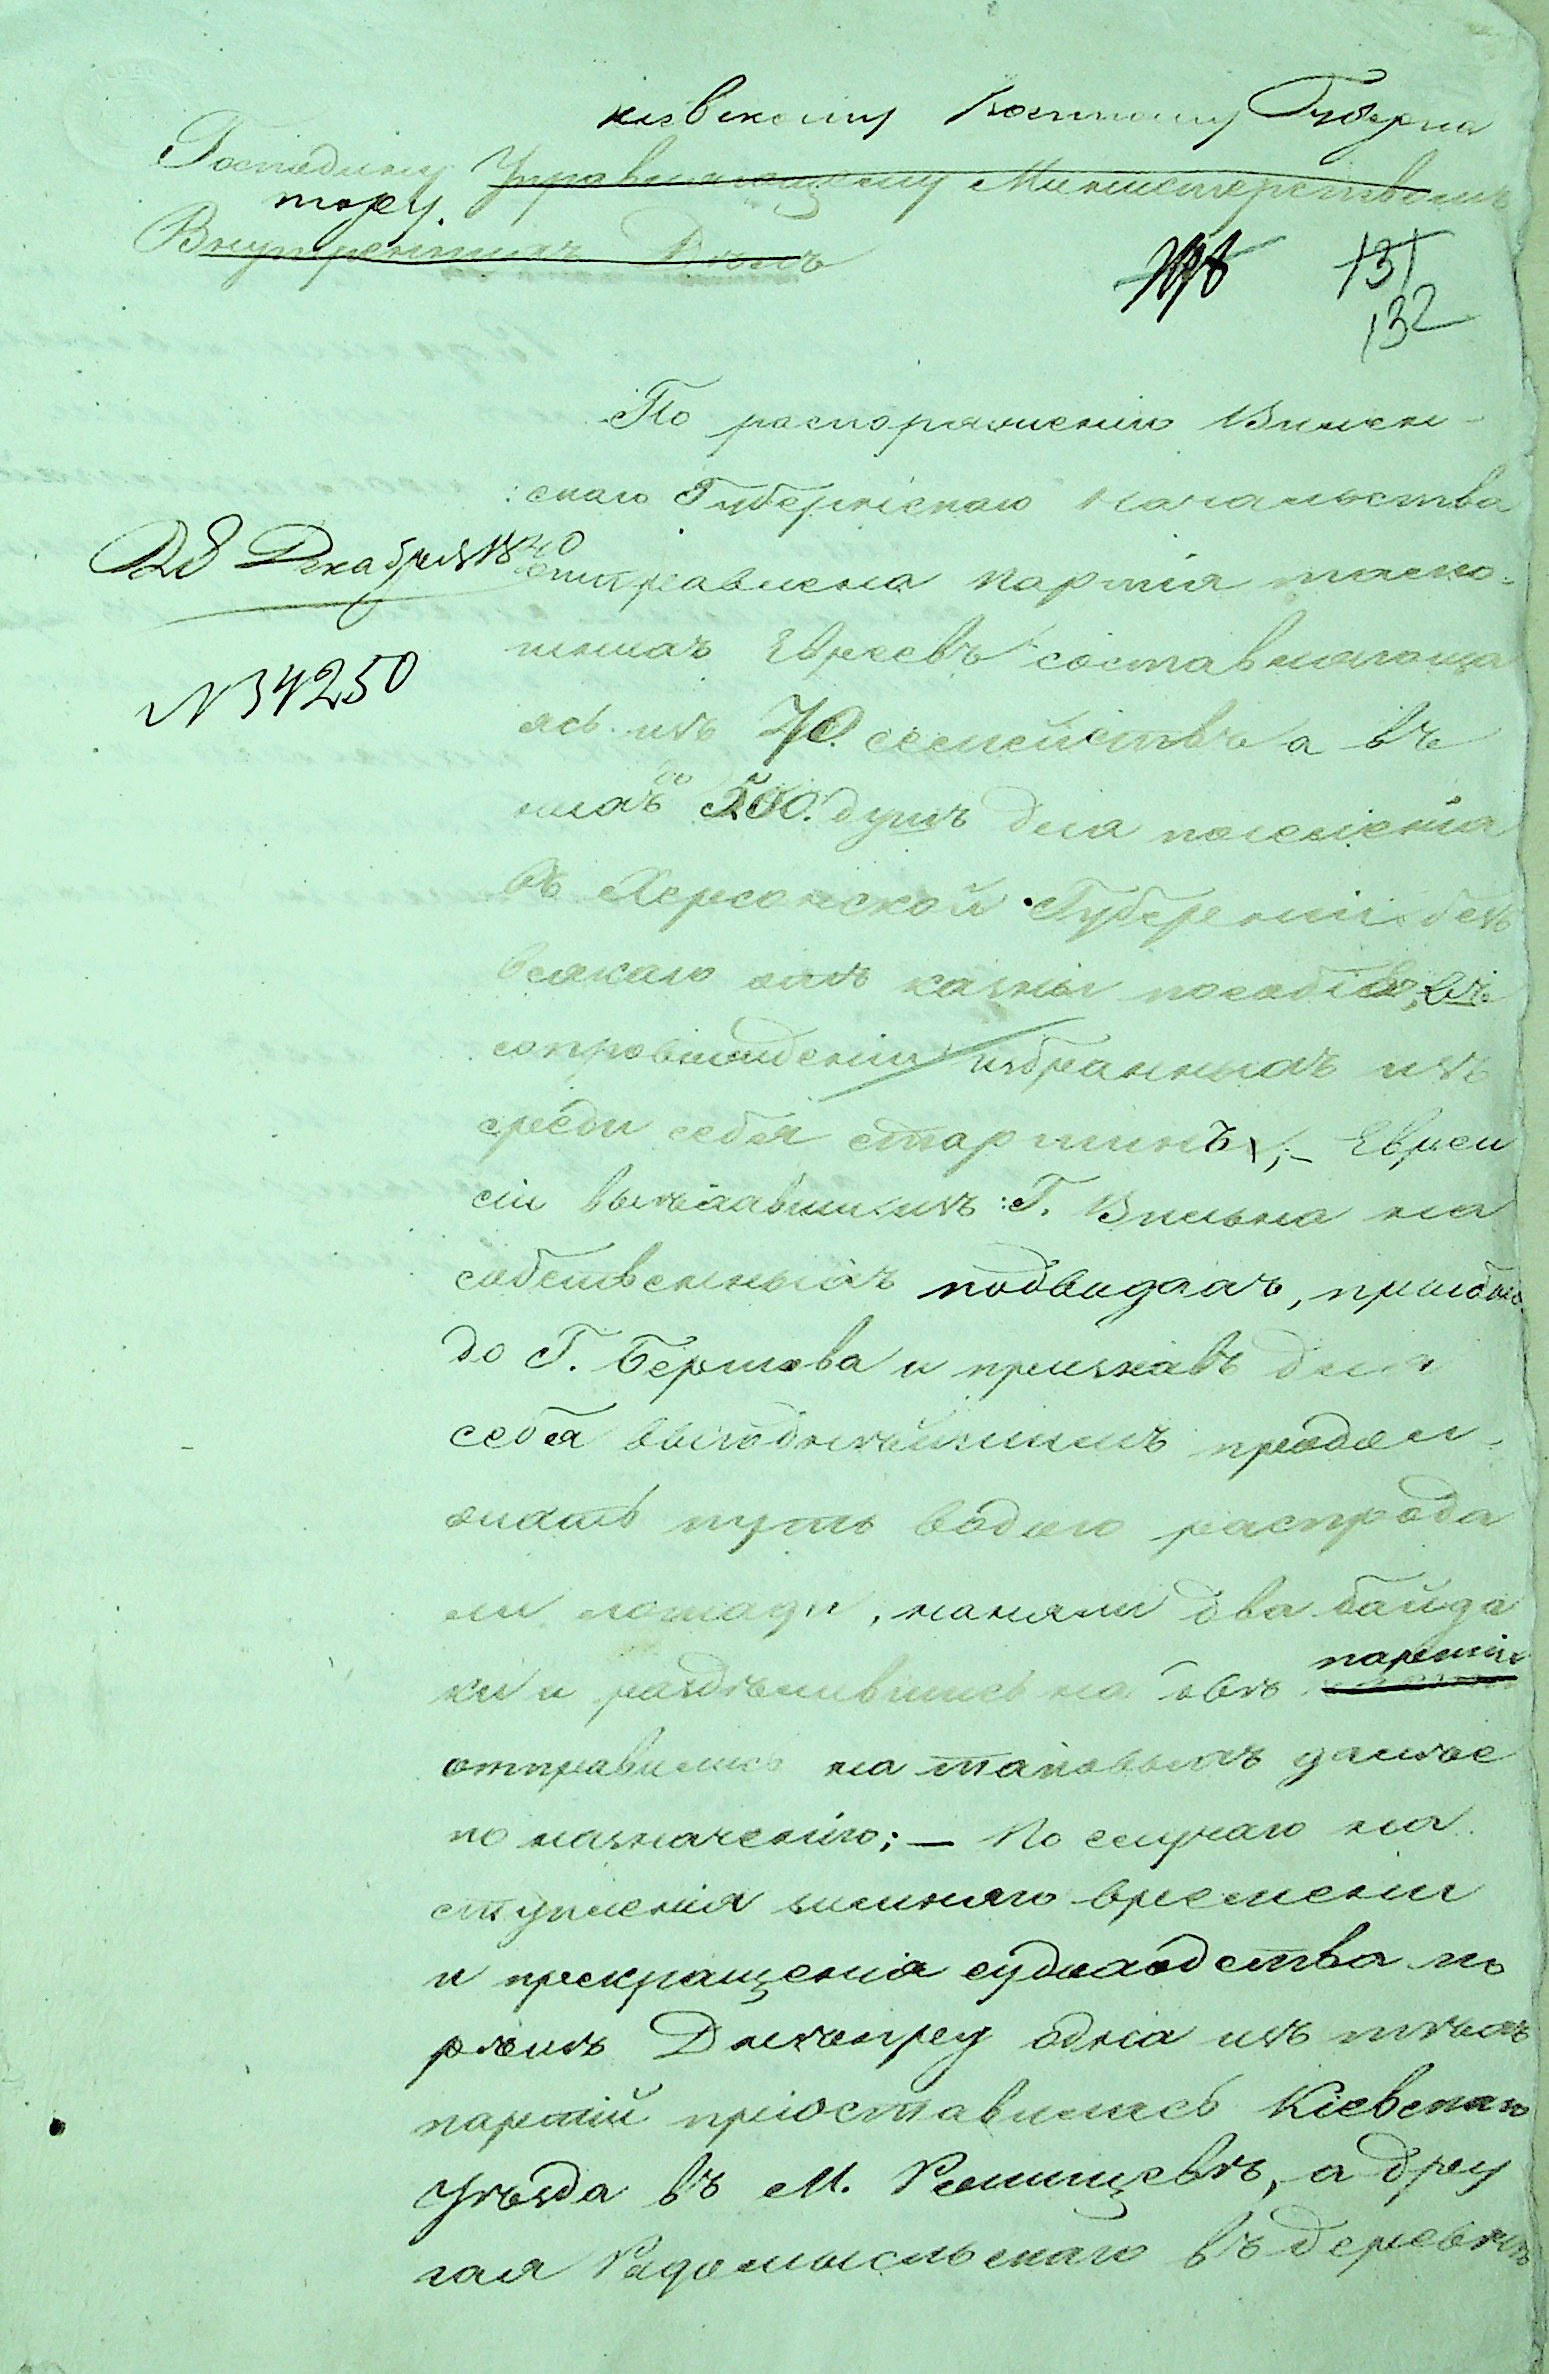 Кіевскому Военному Губерна
Господину Управляющему Министерствомъ
тору.
Внутреннихъ Дѣлъ
131
132
По распоряженію Вилен-
:скаго Губернскаго Начальства
28 Декабря 1840
отправлена партія тамо-
шнихъ Евреевъ составляюща
№ 34250
яся изъ 70. семействъ а въ
нихъ до 500. душъ для поселенія
въ Херсонской Губерніи безъ
всякаго отъ казны пособія, въ
сопровожденіи избранныхъ изъ
среди себя старшинъ; — Евреи
сіи выѣхавши изъ Г. Вильна на
собственныхъ подводахъ, прибыв
до Г. Бершова и признавъ для
себя выгоднѣйшимъ продол-
жать путь водою распрода
ли лошади, наняли два байда
ки и раздѣлившись на двѣ партіи
отправились на таковыхъ далѣе
по назначенію; — По случаю на
ступленія зимняго времени
и прекращенія судоходства по
рѣкѣ Днѣпру одна изъ тѣхъ
партій пріоставилась Кіевскаго
Уѣзда въ М. Ржищевѣ, а дру
гая Радомысльскаго въ деревнѣ